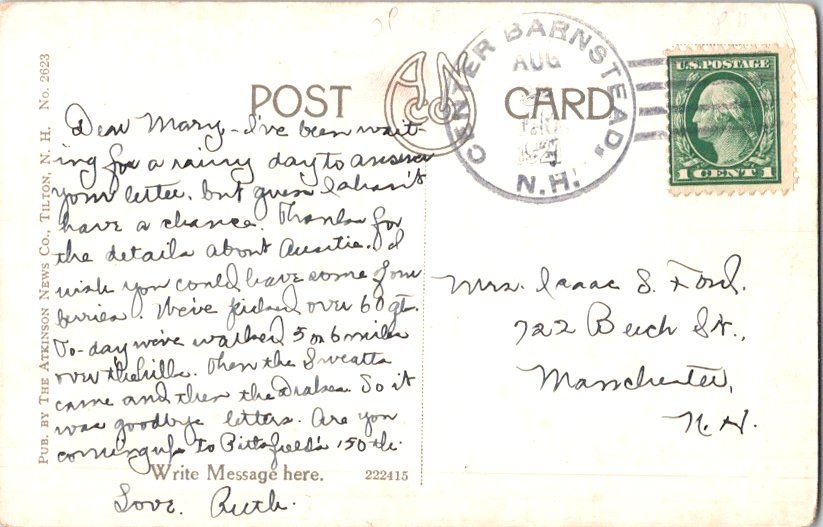 PUB. BY THE ATKINSON NEWS CO., TILTON, N. H. No. 2623
POST CARD
A N CO
CENTER BARNSTEAD,
AUG
N.H.
U.S. POSTAGE
1 CENT 1
Dear Mary - I've been wait-
ing for a rainy day to answer
your letter, but guess I shan't
have a chance. Thanks for
the details about Auntie. I
wish you could have some of our
berries. We've picked over 60 qts.
To-day we've walked 5 or 6 miles
over the hills. Then the Sweatts
came and then the Drakes. So it
was goodbye letters. Are you
coming up to Pittsfield's 150th.
Love. Ruth.
Write Message here.
222415
Mrs. Isaac S. Ford.
722 Beech St.,
Manchester,
N. H.